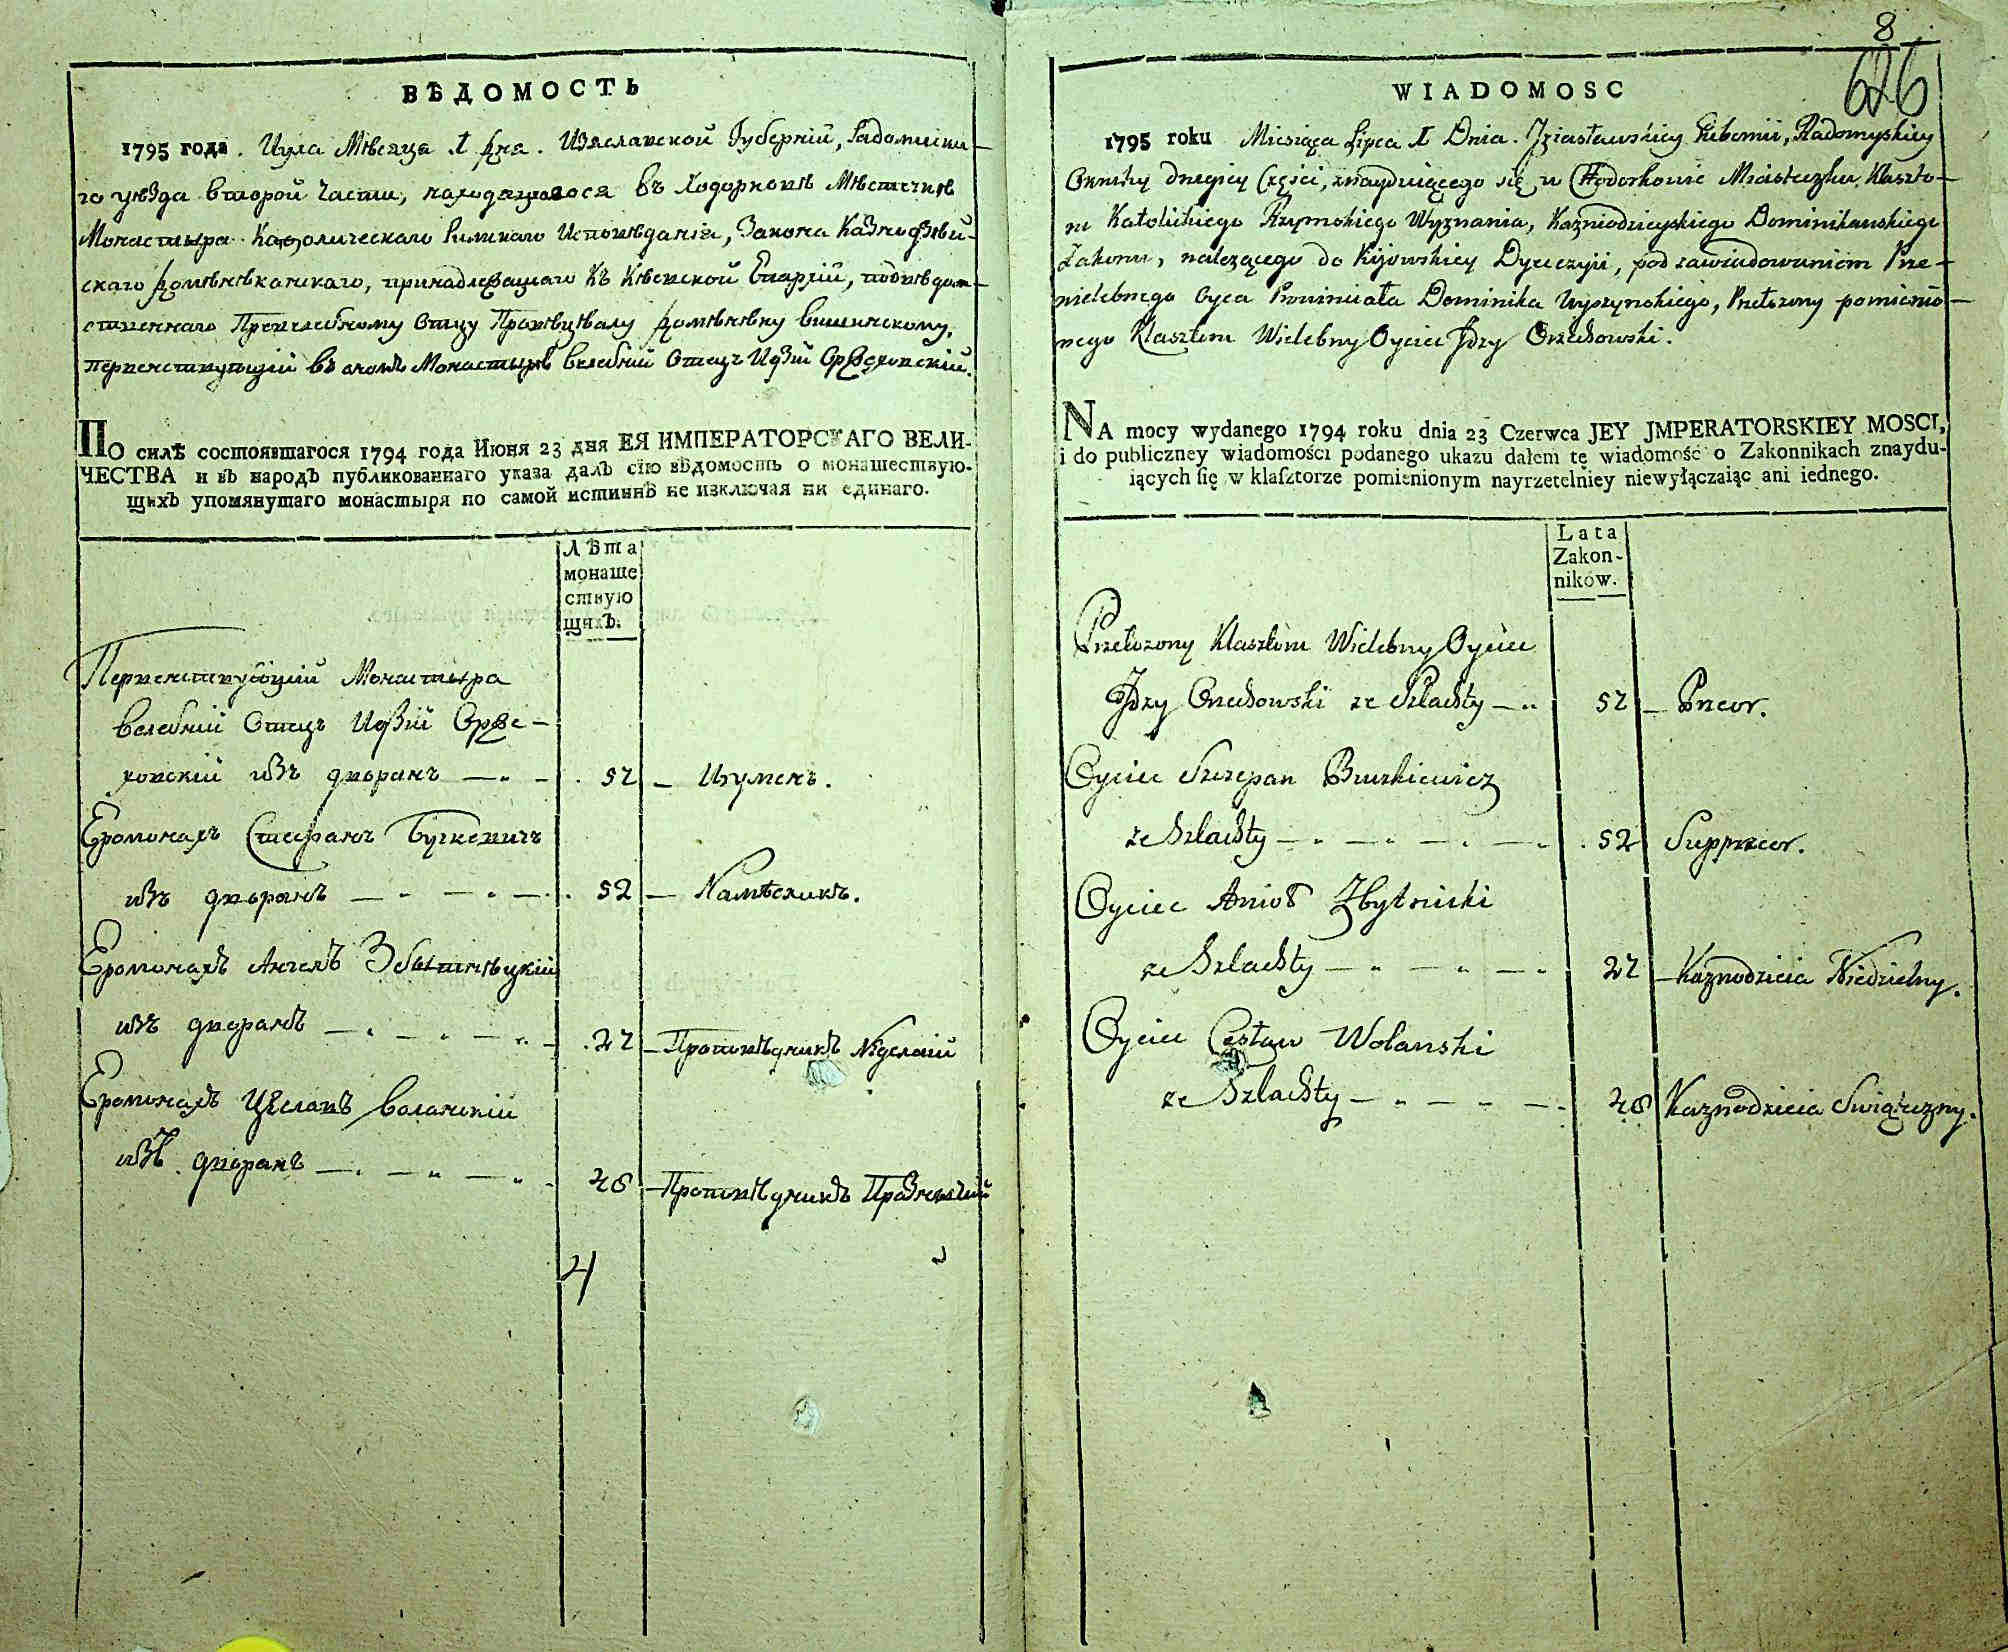 ВѢДОМОСТЬ
1795 года. Иула Мѣсяца 1 дня. Изяславской Губерніи, Радомиски-
го уезда второй Части, находящагося въ Ходорковѣ Мѣстечкѣ
Монастыра Католическаго Римскаго Исповѣданія, Закона Казнодзѣй-
скаго Домѣнѣканскаго, принадлежащаго Къ Кѣевской Епархіи, подвѣдом-
ственнаго Превелебному Отцу Провѣцѣалу Домѣнѣку Вишинскому,
первенствующій въ ономъ Монастырѣ велебній Отецъ Идзій Оржеховскій.
ПО силѣ состоявшагося 1794 года Июня 23 дня ЕЯ ИМПЕРАТОРСКАГО ВЕЛИ-
ЧЕСТВА и въ народъ публикованнаго указа далъ сію вѣдомость о монашествую-
щихъ упомянутаго монастыря по самой истиннѣ не изключая ни единаго.
Лѣта
монаше
ствую
щихъ.
Первенствующій Монастыра
велебній Отецъ Идзій Орже-
ховскій изъ дворанъ — „ - . 52 — Игуменъ.
Еромонахъ Стефанъ Бучкевичъ
изъ дворанъ — „ — „ — . 52 — Намѣсникъ.
Еромонахъ Ангелъ Збытнѣцкій
изъ дворанъ — . — . — „ - . 27 — Проповѣдникъ Недслній
Еромонахъ Цеславъ Воланскій
изъ дворанъ — . — „ — „ - 28 — Проповѣдникъ Празнечній
4
8
626
WIADOMOSC
1795 roku Miesiąca Lipca 1 Dnia. Jziasławskiey Gubernii, Radomyskiey
Okruhy drugiey Części, znayduiącego się w Chodorkowie Miasteczku, Klaszto-
ru Katolickiego Rzymskiego Wyznania, Kaznodzieyskiego Dominikanskiego
Zakonu, należącego do Kijowskiey Dyecezyi, pod zawiadowaniem Prze-
wielebnego Oyca Prowinciała Dominika Wyszynskiego, Przełożony pomienio-
nego Klasztoru Wielebny Oyciec Jdzy Orzechowski.
NA mocy wydanego 1794 roku dnia 23 Czerwca JEY JMPERATORSKIEY MOSCI,
i do publiczney wiadomości podanego ukazu dałem tę wiadomość o Zakonnikach znaydu-
iących się w klasztorze pomienionym nayrzetelniey niewyłączaiąc ani iednego.
Lata
Zakon-
ników.
Przełozony Klasztoru Wielebny Oyciec
Jdzy Orzechowski ze Szlachty — „ 52 — Przeor.
Oyciec Szczepan Buczkiewicz
ze Szlachty — „ — „ — . — „ . 52 Supprzeor.
Oyciec Anioł Zbytnicki
ze Szlachty — „ — „ — „ 27 — Kaznodzieia Niedzielny.
Oyciec Cesław Wolanski
ze Szlachty — „ — „ — . 28 Kaznodzieia Swiąteczny.